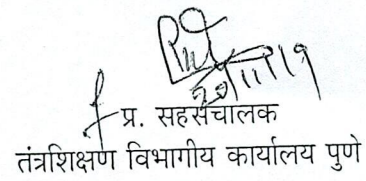 प्र. सहसंचालक
तंत्रशिक्षण विभागीय कार्यालय पुणे